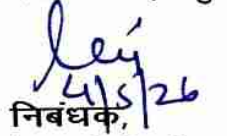 4/5/26
निबंधक,